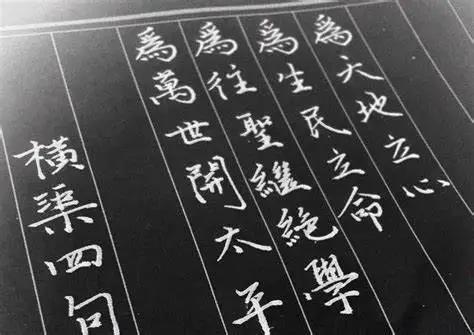 爲天地立心
爲生民立命
爲往聖繼絕學
爲萬世開太平
橫渠四句